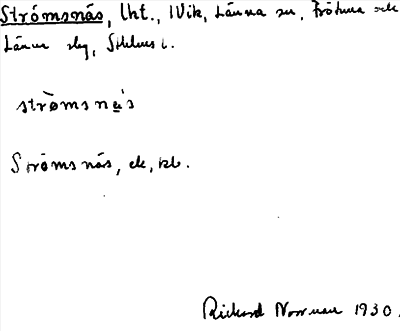 Strömsnäs, lht., Wik, Länna sn, Frötuna och
Länna slg, Sthlms l.
strö̀msnä́s
Strömsnäs, ek, kb.
Rickard Norrman 1930.